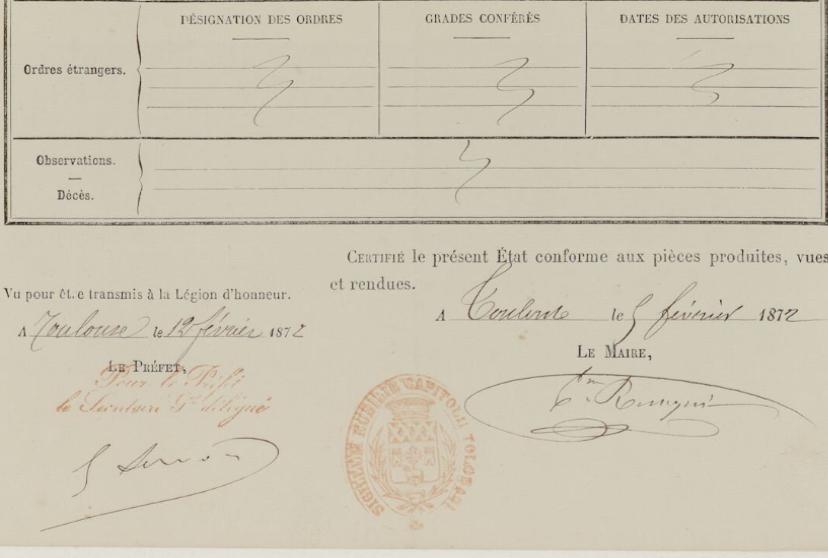 DÉSIGNATION DES ORDRES
GRADES CONFÉRÉS
DATES DES AUTORISATIONS
Ordres étrangers.
Observations.
Décès.
CERTIFIÉ le présent État conforme aux pièces produites, vues
et rendues.
Vu pour êt.e transmis à la Légion d'honneur.
A Toulouse le 5 février 1872
A Toulouse le 12 février 1872
LE MAIRE,
LE PRÉFET,
Pour le Préfet
le Secrétaire Gal délégué
SIGILLUM NOBILIUM CAPITOLII TOLOSANI